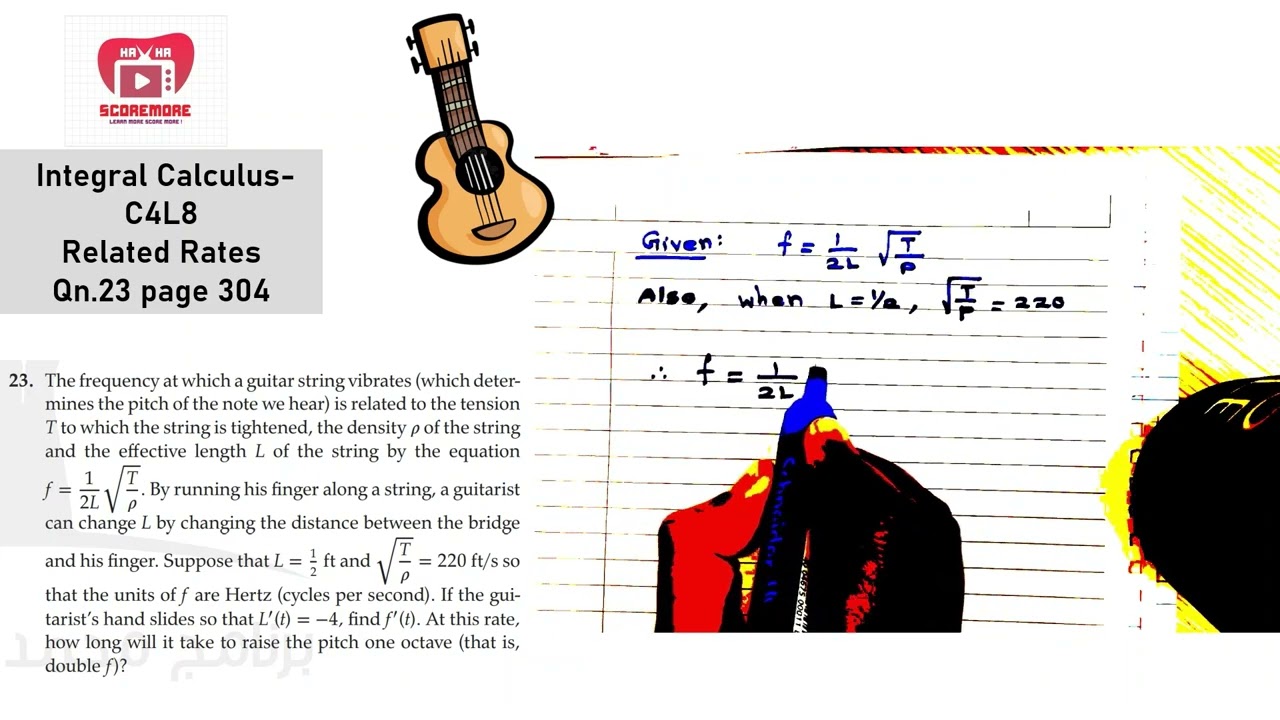 HA HA
SCOREMORE
LEARN MORE SCORE MORE !
Integral Calculus-
C4L8
Related Rates
Qn.23 page 304
23. The frequency at which a guitar string vibrates (which deter-
mines the pitch of the note we hear) is related to the tension
T to which the string is tightened, the density ρ of the string
and the effective length L of the string by the equation
f = 1/2L √T/ρ. By running his finger along a string, a guitarist
can change L by changing the distance between the bridge
and his finger. Suppose that L = 1/2 ft and √T/ρ = 220 ft/s so
that the units of f are Hertz (cycles per second). If the gui-
tarist's hand slides so that L′(t) = −4, find f′(t). At this rate,
how long will it take to raise the pitch one octave (that is,
double f)?
Given: f = 1/2L √T/ρ
Also, when L = 1/2, √T/ρ = 220
∴ f = 1/2L
Schneider